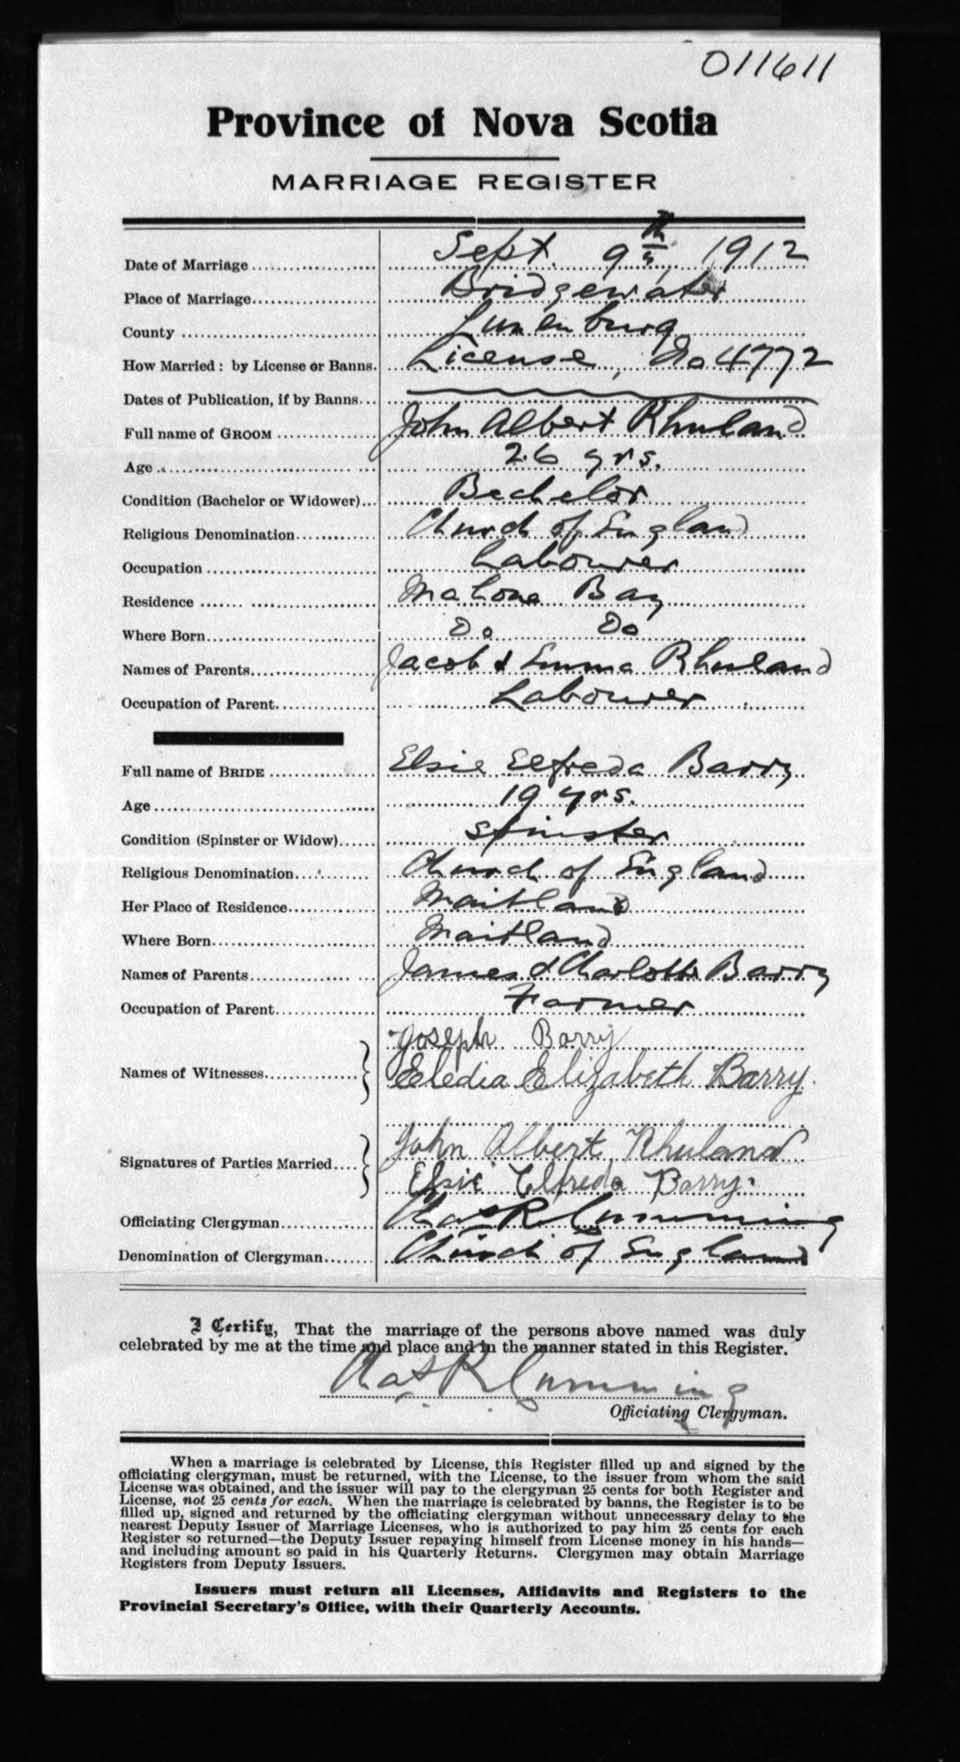 011611
Province of Nova Scotia
MARRIAGE REGISTER
Date of Marriage Sept. 9th 1912
Place of Marriage Bridgewater
County Lunenburg
How Married: by License or Banns. License, No 4772
Dates of Publication, if by Banns
Full name of GROOM John Albert Rhuland
Age 26 yrs.
Condition (Bachelor or Widower) Bachelor
Religious Denomination Church of England
Occupation Labourer
Residence Mahone Bay
Where Born Do Do
Names of Parents Jacob & Emma Rhuland
Occupation of Parent Labourer
Full name of BRIDE Elsie Elfreda Barry
Age 19 yrs.
Condition (Spinster or Widow) Spinster
Religious Denomination Church of England
Her Place of Residence Maitland
Where Born Maitland
Names of Parents James & Charlotte Barry
Occupation of Parent Farmer
Joseph Barry
Names of Witnesses Eledia Elizabeth Barry.
John Albert Rhuland
Signatures of Parties Married
Elsie Elfreda Barry.
Officiating Clergyman Chas R Cumming
Denomination of Clergyman Church of England
I Certify, That the marriage of the persons above named was duly
celebrated by me at the time and place and in the manner stated in this Register.
Chas R Cumming
Officiating Clergyman.
When a marriage is celebrated by License, this Register filled up and signed by the
officiating clergyman, must be returned, with the License, to the issuer from whom the said
License was obtained, and the issuer will pay to the clergyman 25 cents for both Register and
License, not 25 cents for each. When the marriage is celebrated by banns, the Register is to be
filled up, signed and returned by the officiating clergyman without unnecessary delay to the
nearest Deputy Issuer of Marriage Licenses, who is authorized to pay him 25 cents for each
Register so returned—the Deputy Issuer repaying himself from License money in his hands—
and including amount so paid in his Quarterly Returns. Clergymen may obtain Marriage
Registers from Deputy Issuers.
Issuers must return all Licenses, Affidavits and Registers to the
Provincial Secretary's Office, with their Quarterly Accounts.